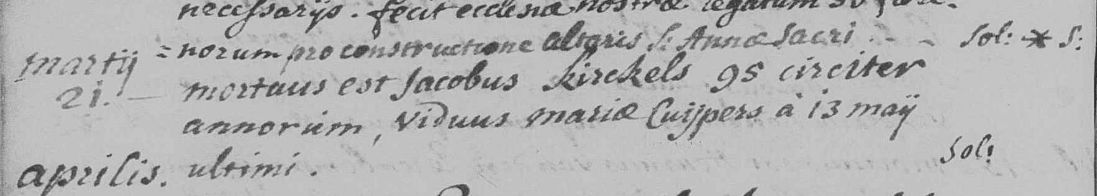 necessarijs. fecit ecclesiæ nostræ legatum 50
= norum pro constructione altaris S: Annæ Sacri - - Sol: * S:
martij mortuus est Jacobus kirckels 95 circiter
21. — annorum, viduus mariæ Cuijpers à 13 maÿ
aprilis. ultimi. Sol: